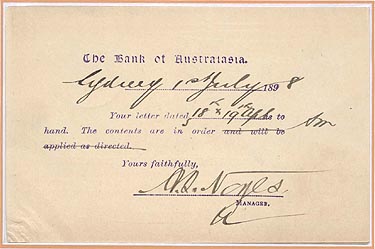 The Bank of Australasia.
Sydney 1st July 1898
Your letter dated 18th & 19th is to
hand. The contents are in order and will be
applied as directed.
Yours faithfully,
Noyes
MANAGER.